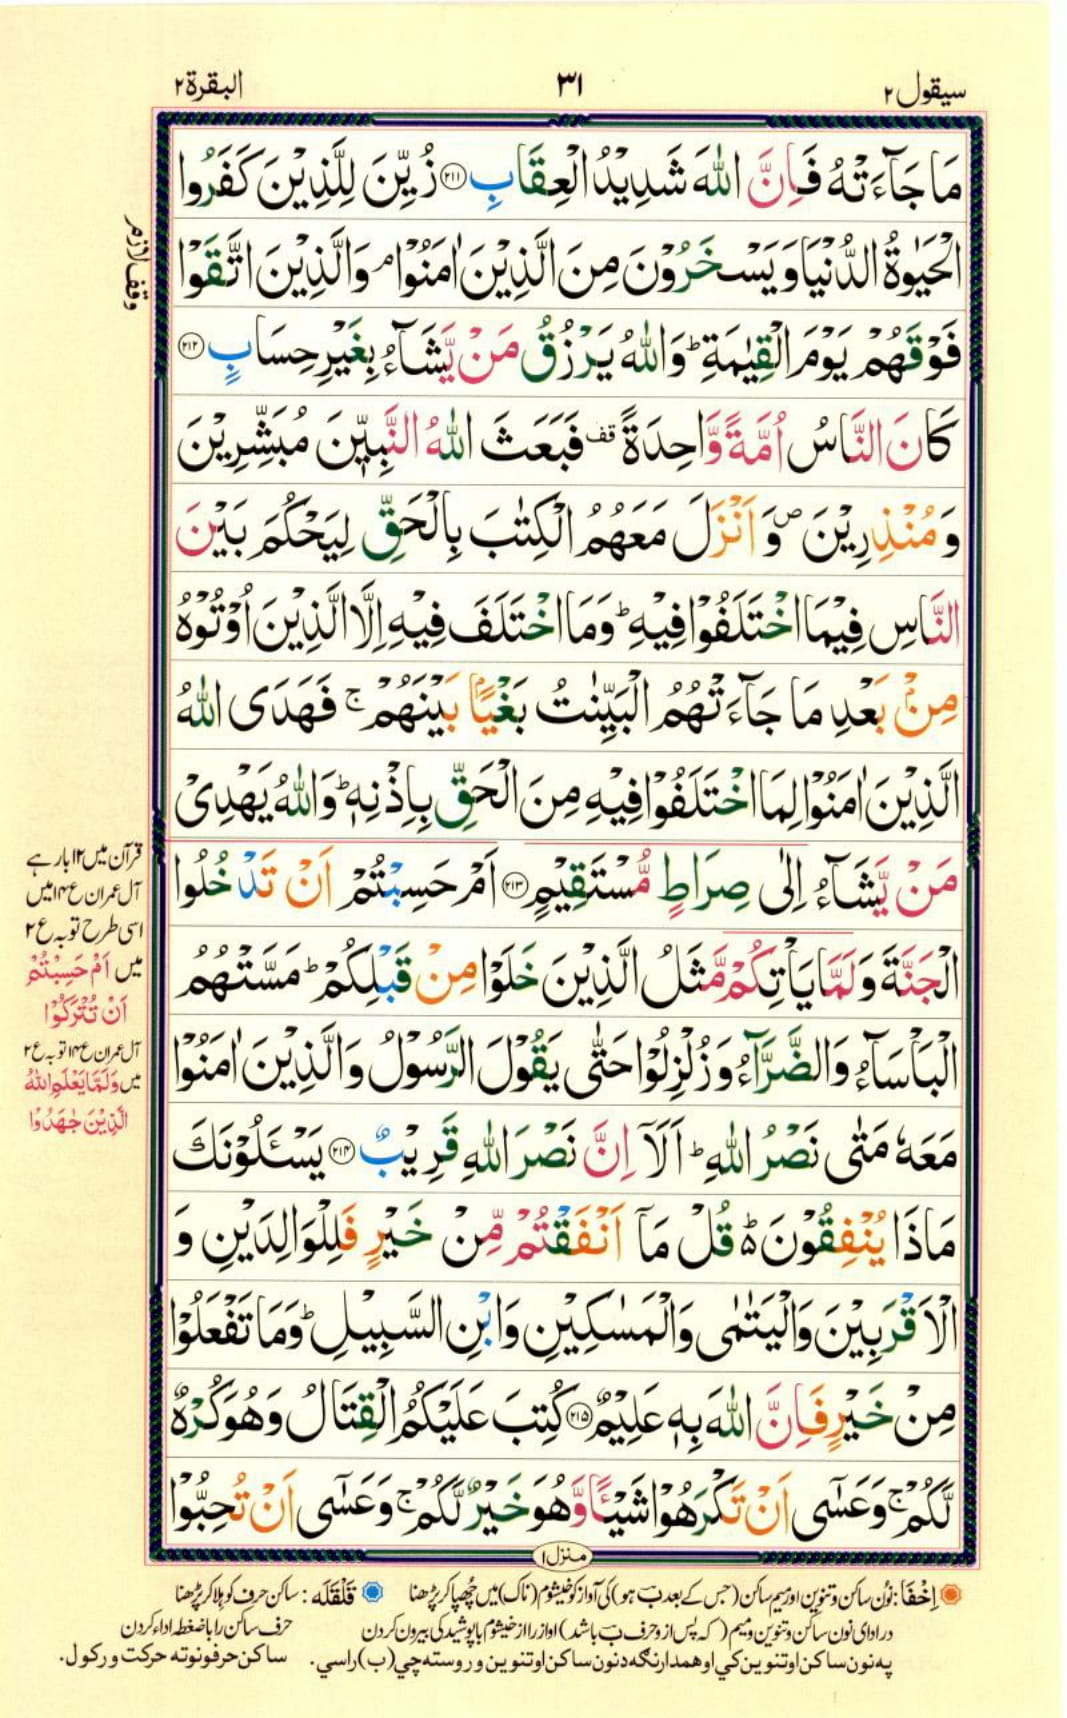 سيقول ٢
٣١
البقرة ٢
مَا جَآءَتْهُ فَاِنَّ اللّٰهَ شَدِيْدُ الْعِقَابِ ﴿٢١١﴾ زُيِّنَ لِلَّذِيْنَ كَفَرُوا
الْحَيٰوةُ الدُّنْيَا وَيَسْخَرُوْنَ مِنَ الَّذِيْنَ اٰمَنُوْا ۘ وَالَّذِيْنَ اتَّقَوْا
وقف لازم
فَوْقَهُمْ يَوْمَ الْقِيٰمَةِ ؕ وَاللّٰهُ يَرْزُقُ مَنْ يَّشَآءُ بِغَيْرِ حِسَابٍ ﴿٢١٢﴾
كَانَ النَّاسُ اُمَّةً وَّاحِدَةً قف فَبَعَثَ اللّٰهُ النَّبِيّٖنَ مُبَشِّرِيْنَ
وَ مُنْذِرِيْنَ ص وَ اَنْزَلَ مَعَهُمُ الْكِتٰبَ بِالْحَقِّ لِيَحْكُمَ بَيْنَ
النَّاسِ فِيْمَا اخْتَلَفُوْا فِيْهِ ؕ وَمَا اخْتَلَفَ فِيْهِ اِلَّا الَّذِيْنَ اُوْتُوْهُ
مِنْۢ بَعْدِ مَا جَآءَتْهُمُ الْبَيِّنٰتُ بَغْيًاۢ بَيْنَهُمْ ۚ فَهَدَى اللّٰهُ
الَّذِيْنَ اٰمَنُوْا لِمَا اخْتَلَفُوْا فِيْهِ مِنَ الْحَقِّ بِاِذْنِهٖ ؕ وَاللّٰهُ يَهْدِيْ
مَنْ يَّشَآءُ اِلٰى صِرَاطٍ مُّسْتَقِيْمٍ ﴿٢١٣﴾ اَمْ حَسِبْتُمْ اَنْ تَدْخُلُوا
الْجَنَّةَ وَلَمَّا يَاْتِكُمْ مَّثَلُ الَّذِيْنَ خَلَوْا مِنْ قَبْلِكُمْ ؕ مَسَّتْهُمُ
الْبَاْسَآءُ وَالضَّرَّآءُ وَزُلْزِلُوْا حَتّٰى يَقُوْلَ الرَّسُوْلُ وَالَّذِيْنَ اٰمَنُوْا
مَعَهٗ مَتٰى نَصْرُ اللّٰهِ ؕ اَلَآ اِنَّ نَصْرَ اللّٰهِ قَرِيْبٌ ﴿٢١٤﴾ يَسْـَٔلُوْنَكَ
مَاذَا يُنْفِقُوْنَ ؕ قُلْ مَآ اَنْفَقْتُمْ مِّنْ خَيْرٍ فَلِلْوَالِدَيْنِ وَ
الْاَقْرَبِيْنَ وَالْيَتٰمٰى وَالْمَسٰكِيْنِ وَابْنِ السَّبِيْلِ ؕ وَمَا تَفْعَلُوْا
مِنْ خَيْرٍ فَاِنَّ اللّٰهَ بِهٖ عَلِيْمٌ ﴿٢١٥﴾ كُتِبَ عَلَيْكُمُ الْقِتَالُ وَهُوَ كُرْهٌ
لَّكُمْ ۚ وَعَسٰٓى اَنْ تَكْرَهُوْا شَيْـًٔا وَّهُوَ خَيْرٌ لَّكُمْ ۚ وَعَسٰٓى اَنْ تُحِبُّوْا
قرآن میں ۱۲ بار ہے
آل عمران ع ۱۴ میں
اسی طرح توبہ ع ۲
میں اَمْ حَسِبْتُمْ
اَنْ تُتْرَكُوْا
آل عمران ع ۱۴ توبہ ع ۲
میں وَلَمَّا يَعْلَمِ اللّٰهُ
الَّذِيْنَ جٰهَدُوْا
منزل ١
اِخْفَا: نُون ساکن و تنوین اور میم ساکن (جس کے بعد ب ہو) کی آواز کو خیشوم (ناک) میں چُھپا کر پڑھنا قَلْقَلَه : ساکن حرف کو ہلا کر پڑھنا
در ادای نون ساکن و تنوین و میم (که پس از و حرف ب باشد) آواز را از خیشوم با پوشیدگی بیرون کردن حرف ساکن را با ضغطه اداء کردن
په نون ساکن او تنوین کي او همدارنگه د نون ساکن او تنوین وروسته چي (ب) راسي. ساکن حرفونو ته حرکت ورکول.